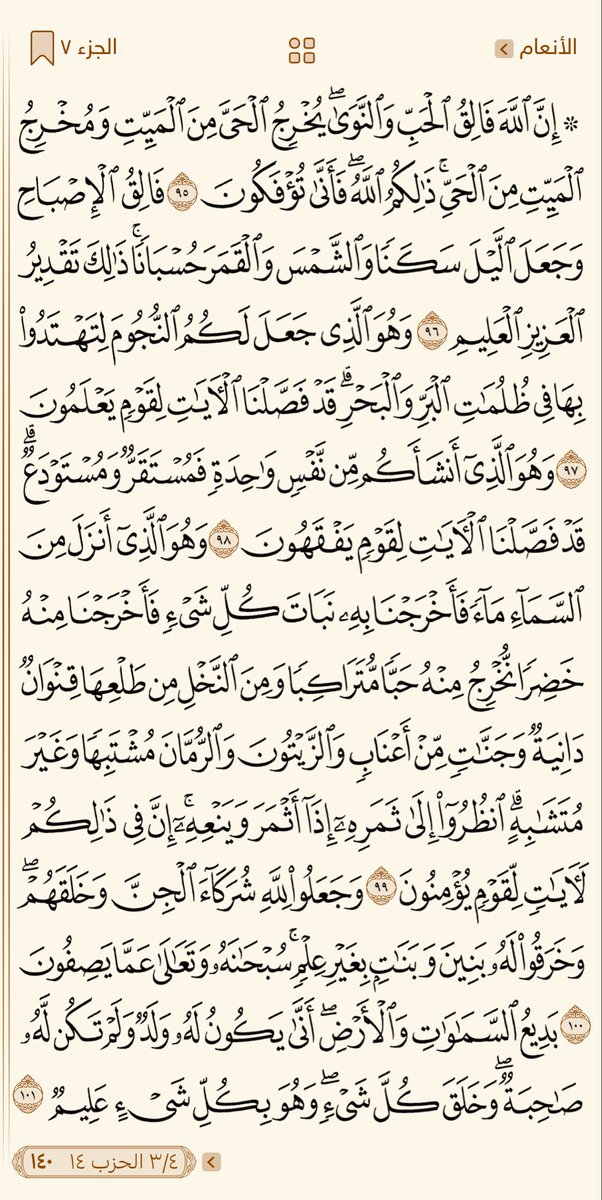 الأنعام
الجزء ٧
۞ إِنَّ ٱللَّهَ فَالِقُ ٱلْحَبِّ وَٱلنَّوَىٰۖ يُخْرِجُ ٱلْحَىَّ مِنَ ٱلْمَيِّتِ وَمُخْرِجُ
ٱلْمَيِّتِ مِنَ ٱلْحَىِّۚ ذَٰلِكُمُ ٱللَّهُۖ فَأَنَّىٰ تُؤْفَكُونَ ٩٥ فَالِقُ ٱلْإِصْبَاحِ
وَجَعَلَ ٱلَّيْلَ سَكَنًا وَٱلشَّمْسَ وَٱلْقَمَرَ حُسْبَانًاۚ ذَٰلِكَ تَقْدِيرُ
ٱلْعَزِيزِ ٱلْعَلِيمِ ٩٦ وَهُوَ ٱلَّذِى جَعَلَ لَكُمُ ٱلنُّجُومَ لِتَهْتَدُوا۟
بِهَا فِى ظُلُمَٰتِ ٱلْبَرِّ وَٱلْبَحْرِۗ قَدْ فَصَّلْنَا ٱلْـَٔايَٰتِ لِقَوْمٍ يَعْلَمُونَ
٩٧ وَهُوَ ٱلَّذِىٓ أَنشَأَكُم مِّن نَّفْسٍ وَٰحِدَةٍ فَمُسْتَقَرٌّ وَمُسْتَوْدَعٌۗ
قَدْ فَصَّلْنَا ٱلْـَٔايَٰتِ لِقَوْمٍ يَفْقَهُونَ ٩٨ وَهُوَ ٱلَّذِىٓ أَنزَلَ مِنَ
ٱلسَّمَآءِ مَآءً فَأَخْرَجْنَا بِهِۦ نَبَاتَ كُلِّ شَىْءٍ فَأَخْرَجْنَا مِنْهُ
خَضِرًا نُّخْرِجُ مِنْهُ حَبًّا مُّتَرَاكِبًا وَمِنَ ٱلنَّخْلِ مِن طَلْعِهَا قِنْوَانٌ
دَانِيَةٌ وَجَنَّٰتٍ مِّنْ أَعْنَابٍ وَٱلزَّيْتُونَ وَٱلرُّمَّانَ مُشْتَبِهًا وَغَيْرَ
مُتَشَٰبِهٍۗ ٱنظُرُوٓا۟ إِلَىٰ ثَمَرِهِۦٓ إِذَآ أَثْمَرَ وَيَنْعِهِۦٓۚ إِنَّ فِى ذَٰلِكُمْ
لَـَٔايَٰتٍ لِّقَوْمٍ يُؤْمِنُونَ ٩٩ وَجَعَلُوا۟ لِلَّهِ شُرَكَآءَ ٱلْجِنَّ وَخَلَقَهُمْۖ
وَخَرَقُوا۟ لَهُۥ بَنِينَ وَبَنَٰتٍۭ بِغَيْرِ عِلْمٍۚ سُبْحَٰنَهُۥ وَتَعَٰلَىٰ عَمَّا يَصِفُونَ
١٠٠ بَدِيعُ ٱلسَّمَٰوَٰتِ وَٱلْأَرْضِۖ أَنَّىٰ يَكُونُ لَهُۥ وَلَدٌ وَلَمْ تَكُن لَّهُۥ
صَٰحِبَةٌۖ وَخَلَقَ كُلَّ شَىْءٍۖ وَهُوَ بِكُلِّ شَىْءٍ عَلِيمٌ ١٠١
٣/٤ الحزب ١٤
١٤٠